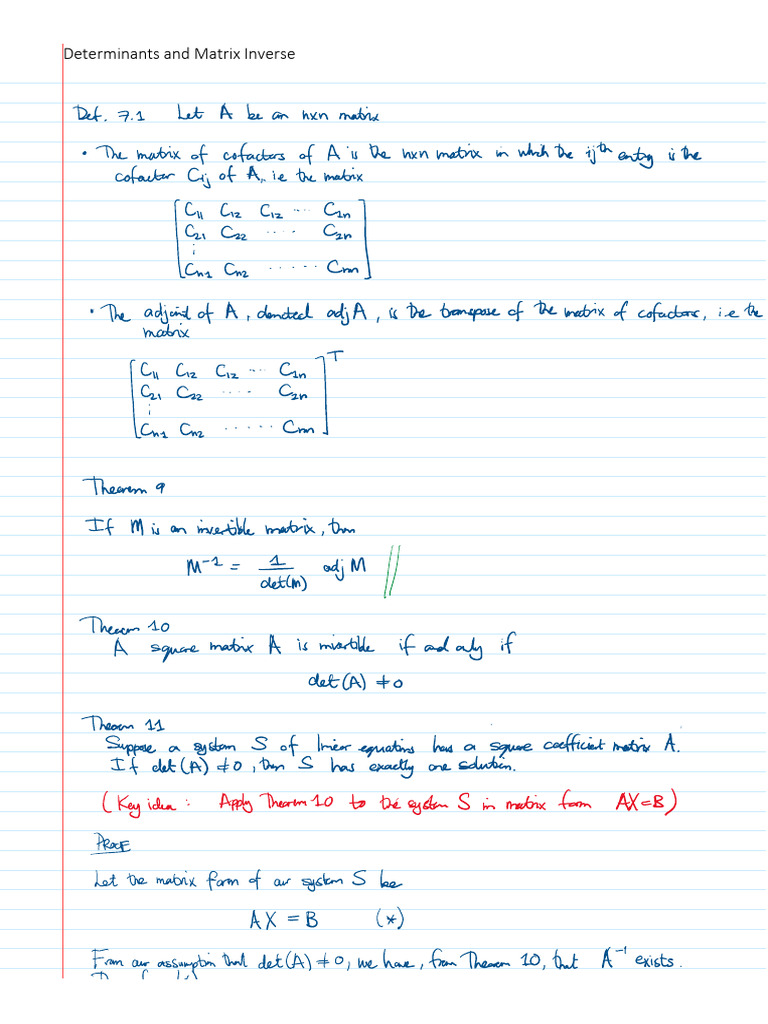 Determinants and Matrix Inverse
Def. 7.1 Let A be an nxn matrix
• The matrix of cofactors of A is the nxn matrix in which the ijth entry is the
cofactor Cij of A, ie the matrix
[C11 C12 C12 ... C1n
C21 C22 .... C2n
⋮
Cn1 Cn2 ...... Cnn]
• The adjoint of A, denoted adj A, is the transpose of the matrix of cofactors, i.e the
matrix
[C11 C12 C12 ... C1n
C21 C22 .... C2n
⋮
Cn1 Cn2 ..... Cnn]T
Theorem 9
If M is an invertible matrix, then
M⁻¹ = 1/det(M) adj M //
Theorem 10
A square matrix A is invertible if and only if
det(A) ≠ 0
Theorem 11
Suppose a system S of linear equations has a square coefficient matrix A.
If det(A) ≠ 0, then S has exactly one solution.
(Key idea: Apply Theorem 10 to the system S in matrix form AX=B)
PROOF
Let the matrix form of our system S be
AX = B (*)
From our assumption that det(A) ≠ 0, we have, from Theorem 10, that A⁻¹ exists.